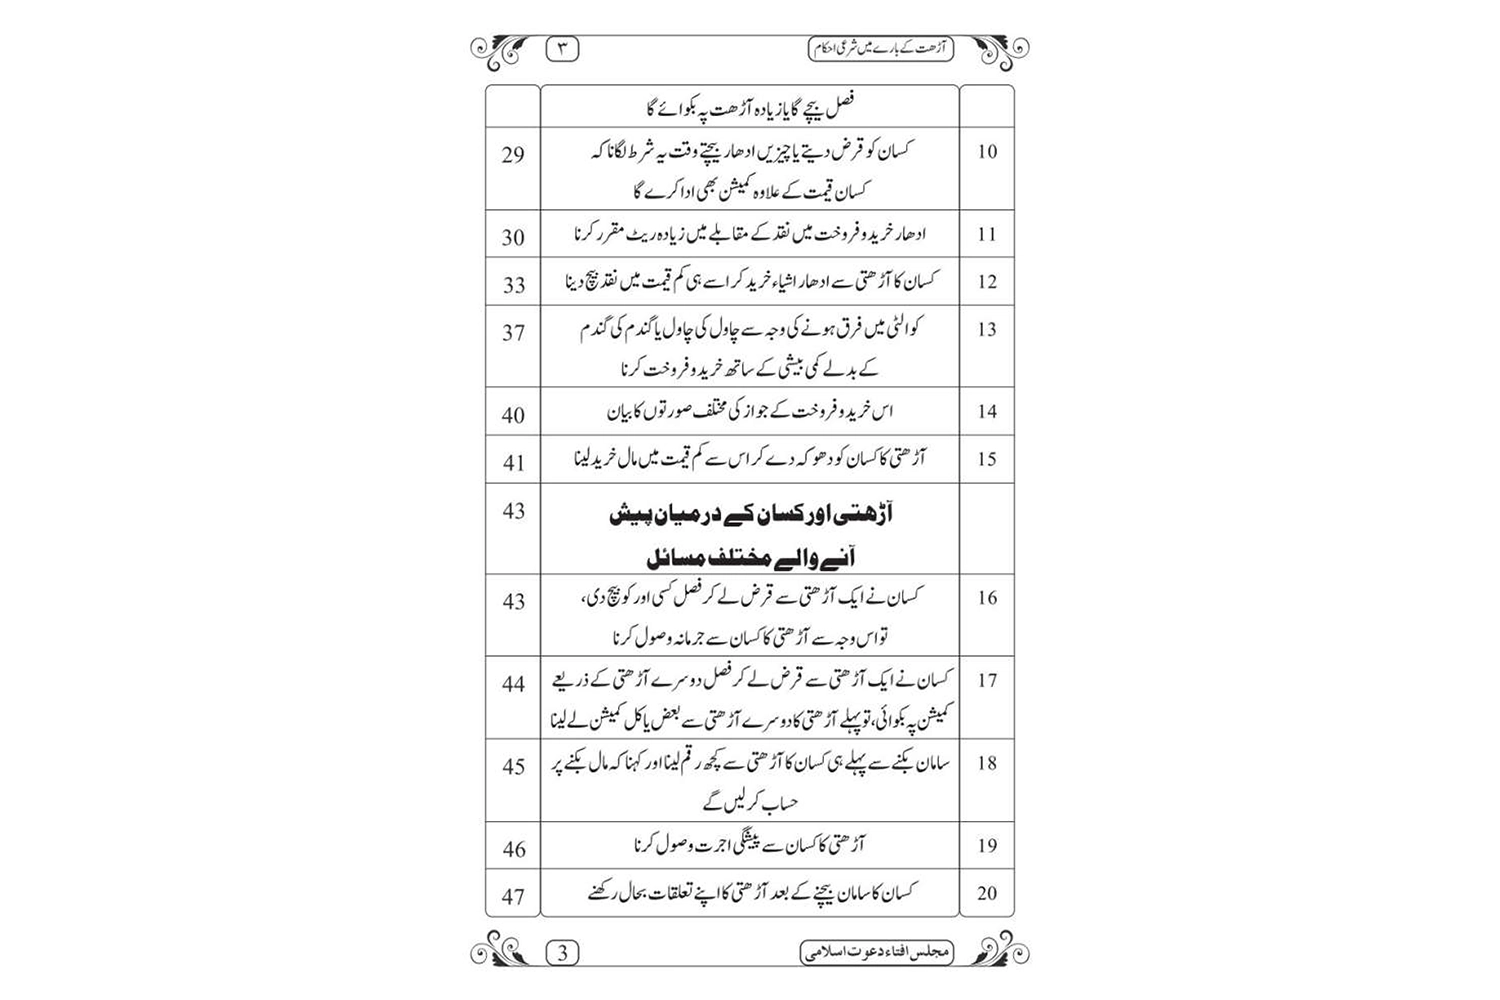 آڑھت کے بارے میں شرعی احکام ۳
فصل بیچے گا یا زیادہ آڑھت پہ بکوائے گا
10 کسان کو قرض دیتے یا چیزیں ادھار بیچتے وقت یہ شرط لگانا کہ 29
کسان قیمت کے علاوہ کمیشن بھی ادا کرے گا
11 ادھار خرید و فروخت میں نقد کے مقابلے میں زیادہ ریٹ مقرر کرنا 30
12 کسان کا آڑھتی سے ادھار اشیاء خرید کر اسے ہی کم قیمت میں نقد بیچ دینا 33
13 کوالٹی میں فرق ہونے کی وجہ سے چاول کی چاول یا گندم کی گندم 37
کے بدلے کمی بیشی کے ساتھ خرید و فروخت کرنا
14 اس خرید و فروخت کے جواز کی مختلف صورتوں کا بیان 40
15 آڑھتی کا کسان کو دھوکہ دے کر اس سے کم قیمت میں مال خرید لینا 41
آڑھتی اور کسان کے درمیان پیش 43
آنے والے مختلف مسائل
16 کسان نے ایک آڑھتی سے قرض لے کر فصل کسی اور کو بیچ دی، 43
تو اس وجہ سے آڑھتی کا کسان سے جرمانہ وصول کرنا
17 کسان نے ایک آڑھتی سے قرض لے کر فصل دوسرے آڑھتی کے ذریعے 44
کمیشن پہ بکوائی، تو پہلے آڑھتی کا دوسرے آڑھتی سے بعض یا کل کمیشن لے لینا
18 سامان بکنے سے پہلے ہی کسان کا آڑھتی سے کچھ رقم لینا اور کہنا کہ مال بکنے پر 45
حساب کر لیں گے
19 آڑھتی کا کسان سے پیشگی اجرت وصول کرنا 46
20 کسان کا سامان بیچنے کے بعد آڑھتی کا اپنے تعلقات بحال رکھنے 47
مجلس افتاء دعوت اسلامی 3